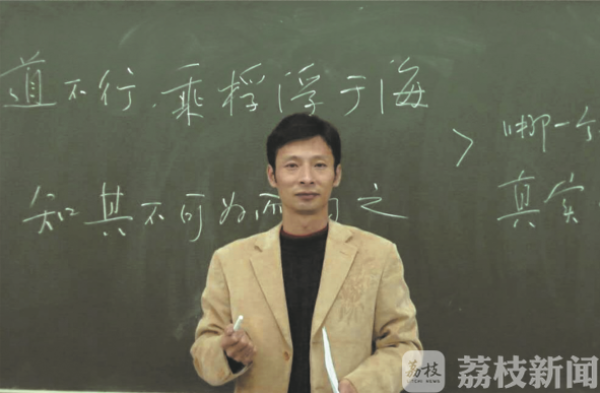 道不行.乘桴浮于海
知其不可为而为之
哪一个
真实
荔枝
LITCHI NEWS
荔枝新闻